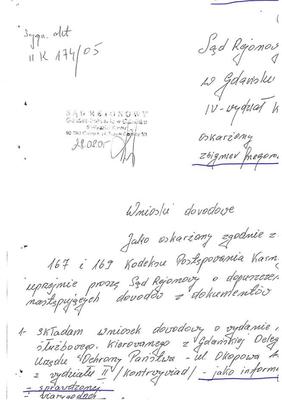 Sygn. akt
II K 174/05
Sąd Rejonow
w Gdańsku
IV-wydział K
oskarżony
Zbigniew
SĄD REJONOWY
Wnioski dowodowe
Jako oskarżony zgodnie z
167 i 169 Kodeksu Postępowania Karn
uprzejmie proszę Sąd Rejonowy o dopuszczen
następujących dowodów z dokumentów
1. Składam wniosek dowodowy o wydanie
służbowego. Kierowanego z Gdańskiej Deleg
Urzędu Ochrony Państwa - ul. Okopowa
z wydziału II /Kontrwywiad/ - jako inform
- sprawdzonej
- wiarygodnej